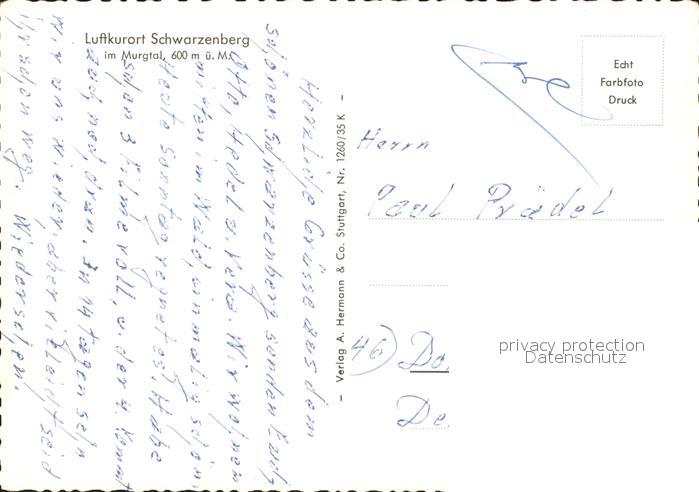 Luftkurort Schwarzenberg
im Murgtal, 600 m ü. M.
Herzliche Grüsse aus dem
schönen Schwarzenberg senden Euch
Otto, Hedel u. Vera. Wir wohnen
mitten im Wald, einmalig schön.
Heute Sonntag regnet es. Habe
schon 3 Filme voll, u. der 4. kommt
auch noch dran. In 14 Tagen sehn
wir uns wieder, aber vielleicht seid
ihr schon weg. Wiedersehen.
– Verlag A. Hermann & Co. Stuttgart, Nr. 1260/35 K –
Echt
Farbfoto
Druck
Herrn
Paul Prädel
46) Do
De
privacy protection
Datenschutz